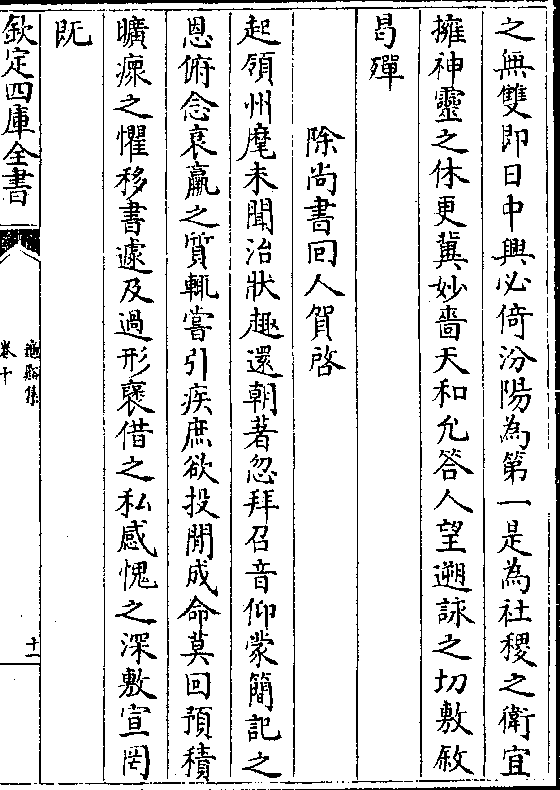 之無雙即日中興必倚汾陽為第一是為社稷之衛宜
擁神靈之休更冀妙嗇天和允答人望遡詠之切敷敘
曷殫
除尚書回人賀啓
起領州麾未聞治狀趣還朝著忽拜召音仰蒙簡記之
恩俯念衰羸之質輒嘗引疾庶欲投閒成命莫回預積
曠瘝之懼移書遽及過形褒借之私感愧之深敷宣罔
既
欽定四庫全書
龜谿集
卷十
十一